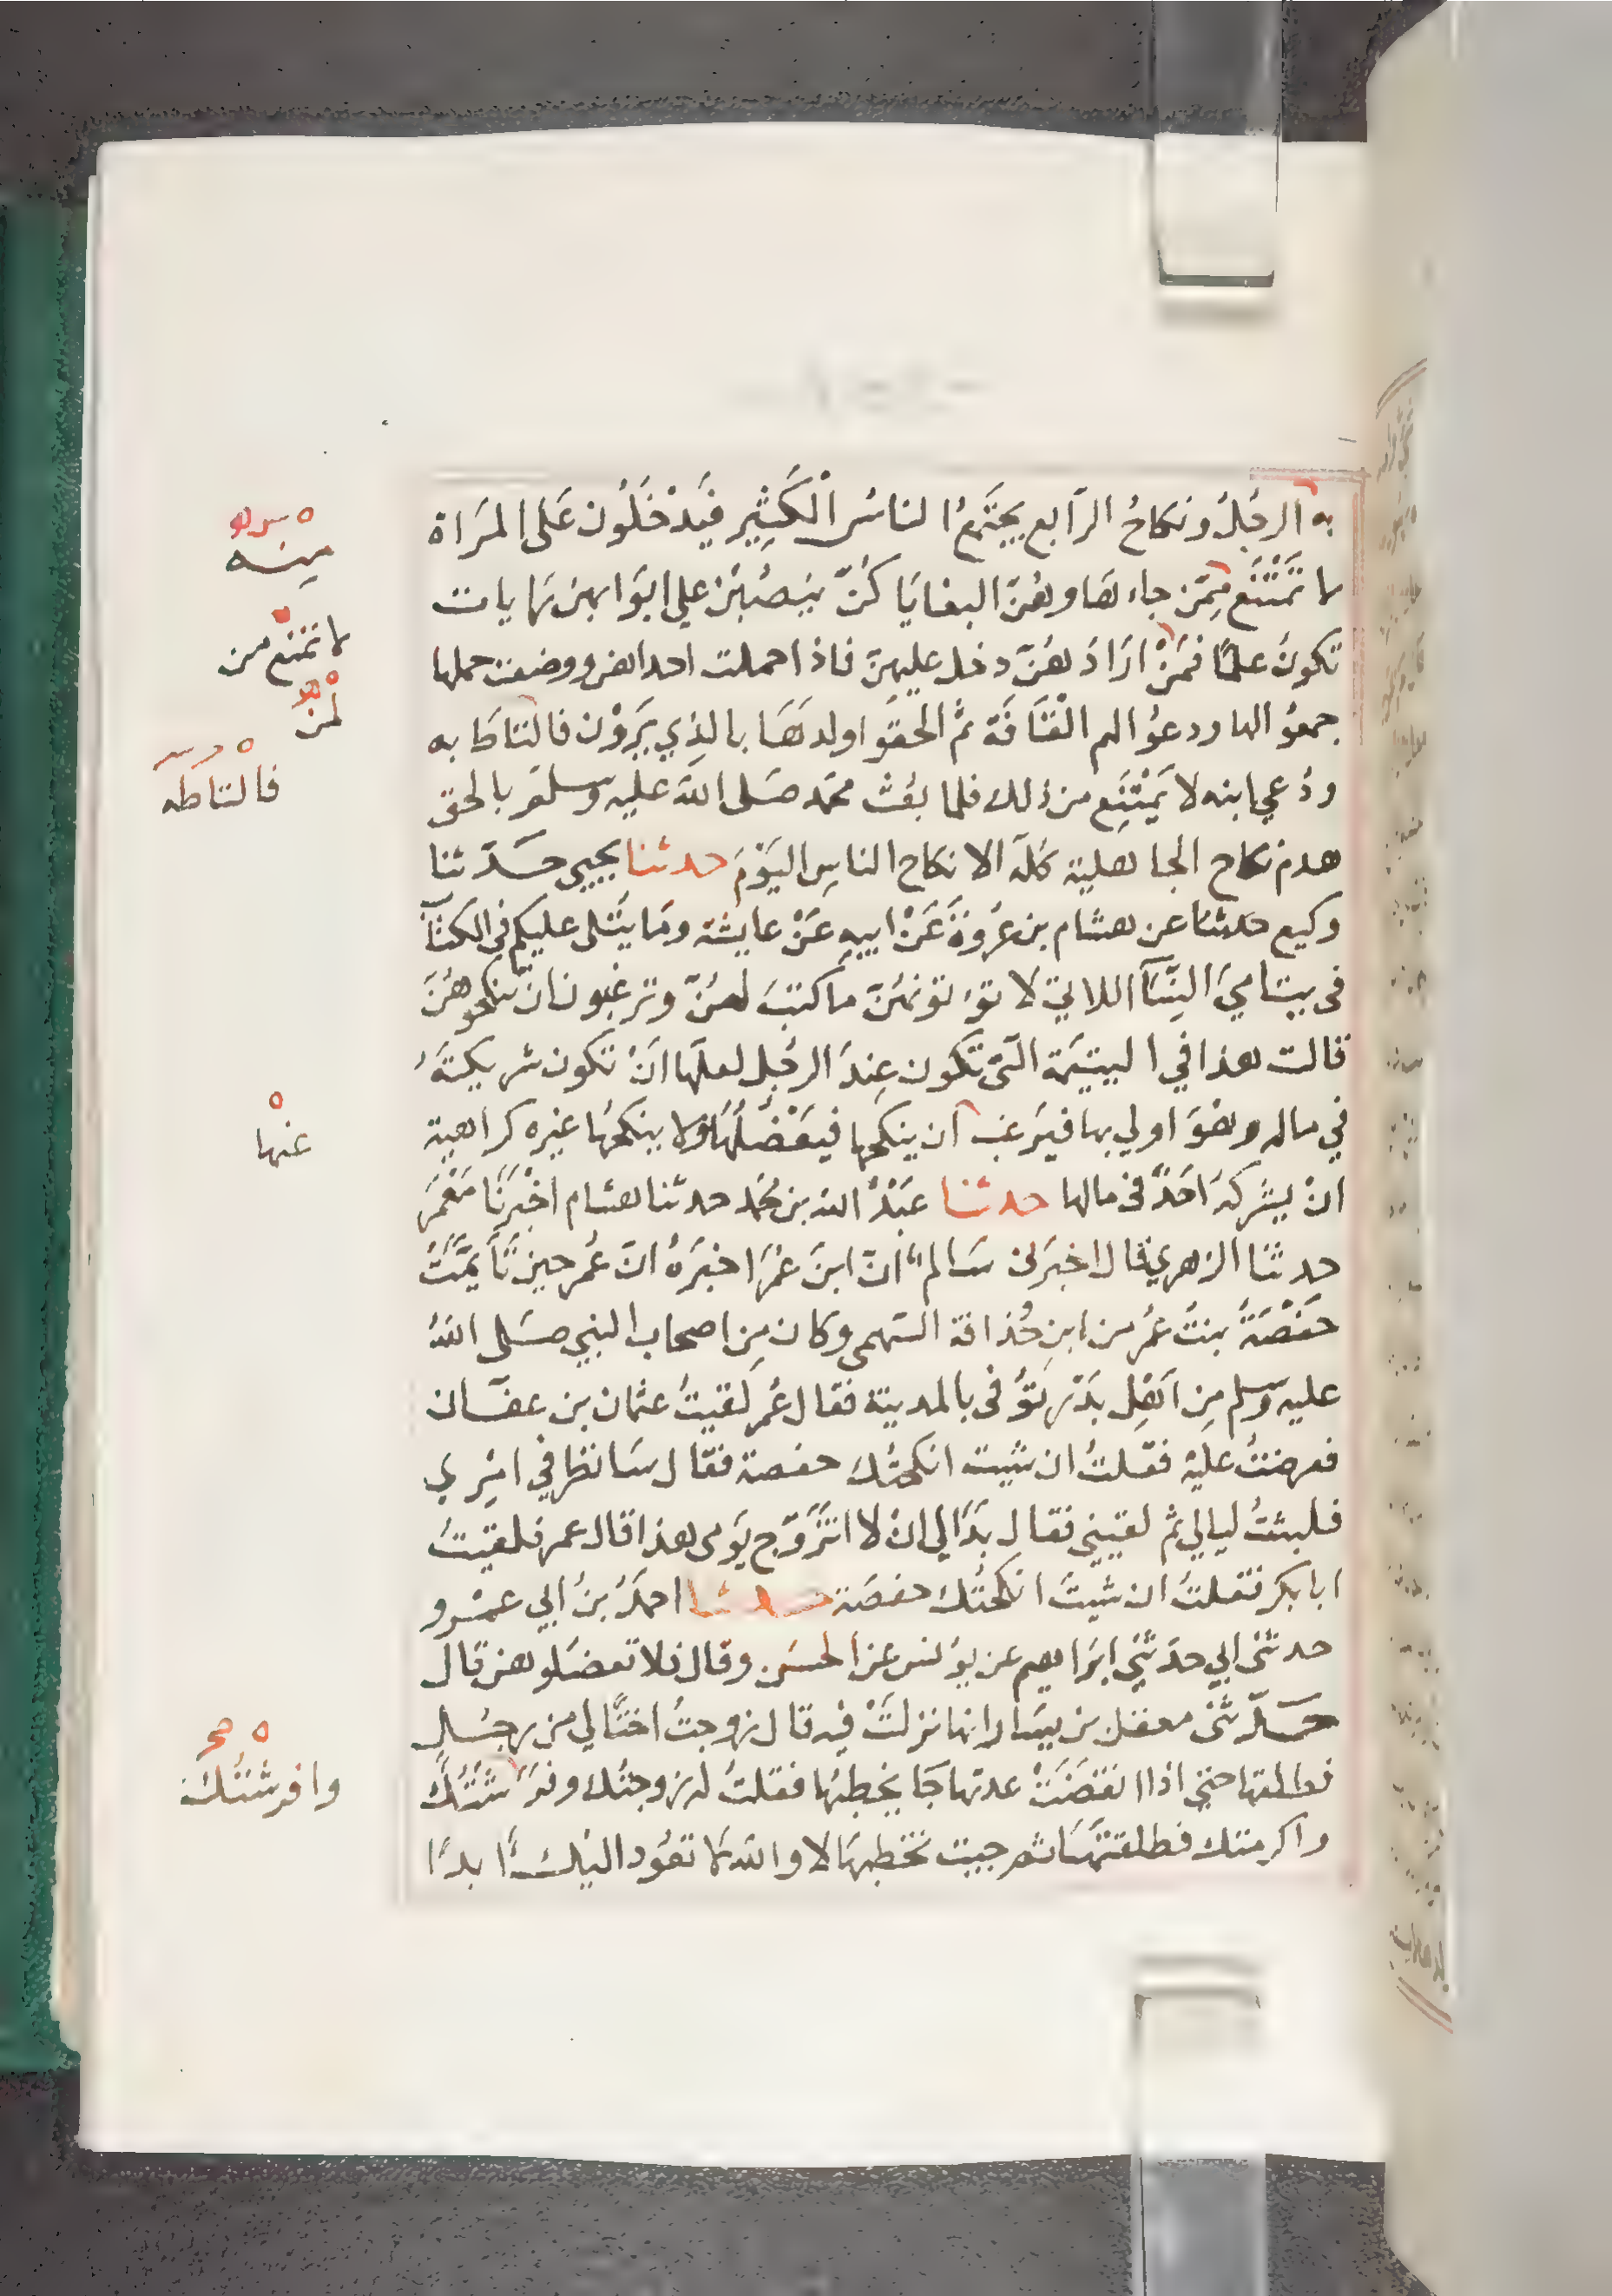 به الرجُلُ ونكاحُ الرّابع يجتَمعُ الناسُ الْكَثِيْر فَيَدْخَلُون عَلى المرَاة
لا تَمْتَنَع مِمّن جاء هَا وهُنّ البغايَا كُنّ يَنصُبْنَ على ابوَابهن رَايات
تكونُ علمًا فمَنْ ارَادَ هُنّ دخل عليهنّ فاذا حملت احداهن ووضعت حملها
جمعُو الها ودعوُ الهم الْقَافَة ثمّ الحقوُا ولدهَا بالذِي يَرَوْن فالتاطَ به
ودُعي ابنه لا يَمْتَنِع من ذلك فلما بُعث محمّد صَلى اللّه عليه وسلم بالحق
هدم نكاح الجاهلية كلّه الا نكاح الناسِ اليَوْمَ حدثنا يحيى حَدّثنا
وكيع حدثنا عن هشام بن عُروَةَ عَنْ ابيهِ عَنْ عايشة ومَا يتُلى عليكم في الكتاب
فى يتامى النِّسَآ اللاتي لا تؤتونهُنّ ما كتبَ لهنّ وترغبون ان تنكحوهُنّ
قالت هذا في اليتيْمَة الّتى تكون عِندَ الرجُل لعلّها انَْ تكون شريكتَهُ
في ماله وهُوَ اولي بها فيَرغب ان ينكحها فيَعْضُلُهَا ولا ينكحهُا غيره كراهية
انْ يشركهُ احَدٌ فى مالها حدثنا عَبْدُ اللّه بن محُمّد حدثنا هشام اخْبرَنَا مَعْمَر
حدثنا الزهري قال اخبرَنى سَالمٌ انّ ابنَ عُمَرَ اخبَرهُ انّ عُمر حين تَأَيَّمَتْ
حَفْصَةُ بنتُ عُمَر من ابنِ حُذافة السّهمى وكان مِن اصحاب النبي صَلى اللّهُ
عليه وسلم مِن اهْلِ بَدْر تُوُفى بالمدينة فقال عُمر لقيتُ عثمان بن عفّان
فعرضتُ عليْه فقلتُ ان شيت انكحْتُك حفصة فقال سَانظر في امْري
فلبثتُ ليالي ثمّ لقيني فقال بدَا لي انْ لا اتزَوّج يَومى هذا قال عمر فلقيتُ
ابا بكر فقلتُ ان شيتَ انكحْتُك حفصَة حدثنا احمَدُ بنُ ابي عمْرو
حدثنى ابي حدّثني ابرَاهيم عن يوُنس عن الحسَن وقال فلا تعضلوهن قال
حَدّثنى معقل بن يسَار انها نزلتْ فيه قال زوجتُ اختًا لي من رجُل
فطلقها حتى اذا انقضَتْ عدتها جَا يخطبهُا فقلتُ له زوجتُك وفرَشتُكَ
واكرمتك فطلقتهَا ثم جيت تخطبهَا لا واللّه لا تعُود اليْك ابدًا
منه
لا تمتنع من
لمن
فالتاطه
عنها
وافرشتك
صح